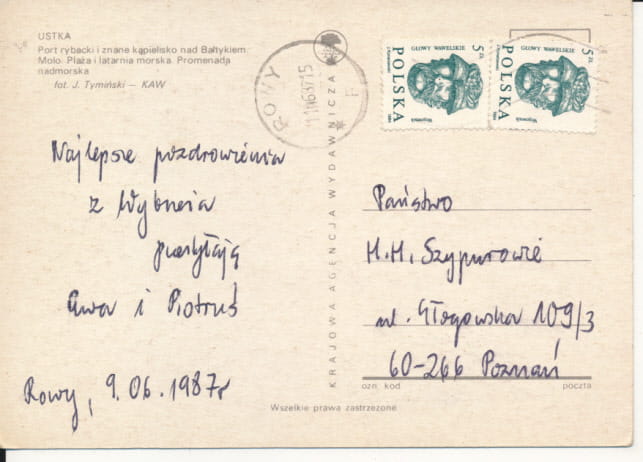 USTKA
Port rybacki i znane kąpielisko nad Bałtykiem.
Molo. Plaża i latarnia morska. Promenada
nadmorska
fot. J. Tymiński — KAW
Najlepsze pozdrowienia
z Wybrzeża
przesyłają
Ewa i Piotruś
Rowy, 9.06.1987r
KRAJOWA AGENCJA WYDAWNICZA
ROWY
GŁOWY WAWELSKIE
5 ZŁ
POLSKA
Wojownik
GŁOWY WAWELSKIE
5 ZŁ
POLSKA
Wojownik
Państwo
H.H. Szypurowie
ul. Głogowska 109/3
60-266 Poznań
ozn. kod
poczta
Wszelkie prawa zastrzeżone